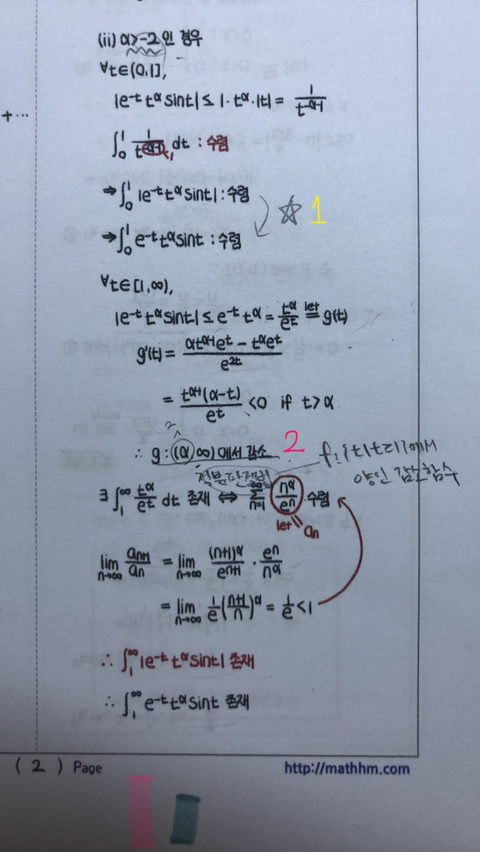 (ii) α>-2 인 경우
∀t∈(0,1],
|e⁻ᵗ tᵅ sint| ≤ 1·tᵅ·|t| = 1/t^(-α-1)
+ ...
∫₀¹ 1/t^(-α-1) dt : 수렴
⇒ ∫₀¹ |e⁻ᵗ tᵅ sint| : 수렴
☆ 1
⇒ ∫₀¹ e⁻ᵗ tᵅ sint : 수렴
∀t∈[1,∞),
|e⁻ᵗ tᵅ sint| ≤ e⁻ᵗ tᵅ = tᵅ/eᵗ let= g(t)
g'(t) = (αt^(α-1)eᵗ - tᵅeᵗ)/e^(2t)
= t^(α-1)(α-t)/eᵗ <0 if t>α
∴ g : (α, ∞)에서 감소 2
적분판정법
양인 감소함수
∃ ∫₁^∞ tᵅ/eᵗ dt 존재 ⇔ Σ_(n=1)^∞ nᵅ/eⁿ 수렴
let = aₙ
lim_(n→∞) aₙ₊₁/aₙ = lim_(n→∞) (n+1)ᵅ/eⁿ⁺¹ · eⁿ/nᵅ
= lim_(n→∞) 1/e ((n+1)/n)ᵅ = 1/e <1
∴ ∫₁^∞ |e⁻ᵗ tᵅ sint| 존재
∴ ∫₁^∞ e⁻ᵗ tᵅ sint 존재
( 2 ) Page
http://mathhm.com